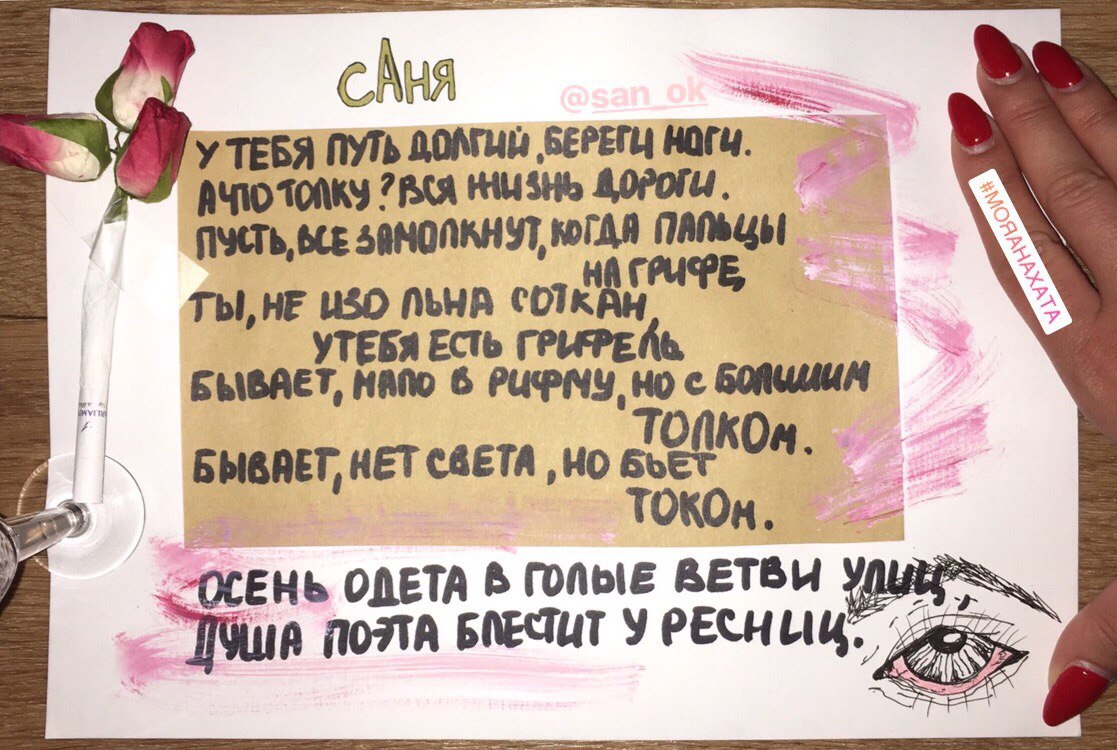 сАня
@san_ok
У ТЕБЯ ПУТЬ ДОЛГИЙ, БЕРЕГИ НОГИ.
А ЧТО ТОЛКУ? ВСЯ ЖИЗНЬ ДОРОГИ.
ПУСТЬ, ВСЕ ЗАМОЛКНУТ, КОГДА ПАЛЬЦЫ
НА ГРИФЕ,
ТЫ, НЕ ИЗО ЛЬНА СОТКАН,
У ТЕБЯ ЕСТЬ ГРИФЕЛЬ.
БЫВАЕТ, МАЛО В РИФМУ, НО С БОЛЬШИМ
ТОЛКОМ.
БЫВАЕТ, НЕТ СВЕТА, НО БЬЕТ
ТОКОМ.
ОСЕНЬ ОДЕТА В ГОЛЫЕ ВЕТВИ УЛИЦ,
ДУША ПОЭТА БЛЕСТИТ У РЕСНИЦ.
#МОЯНАХАТА